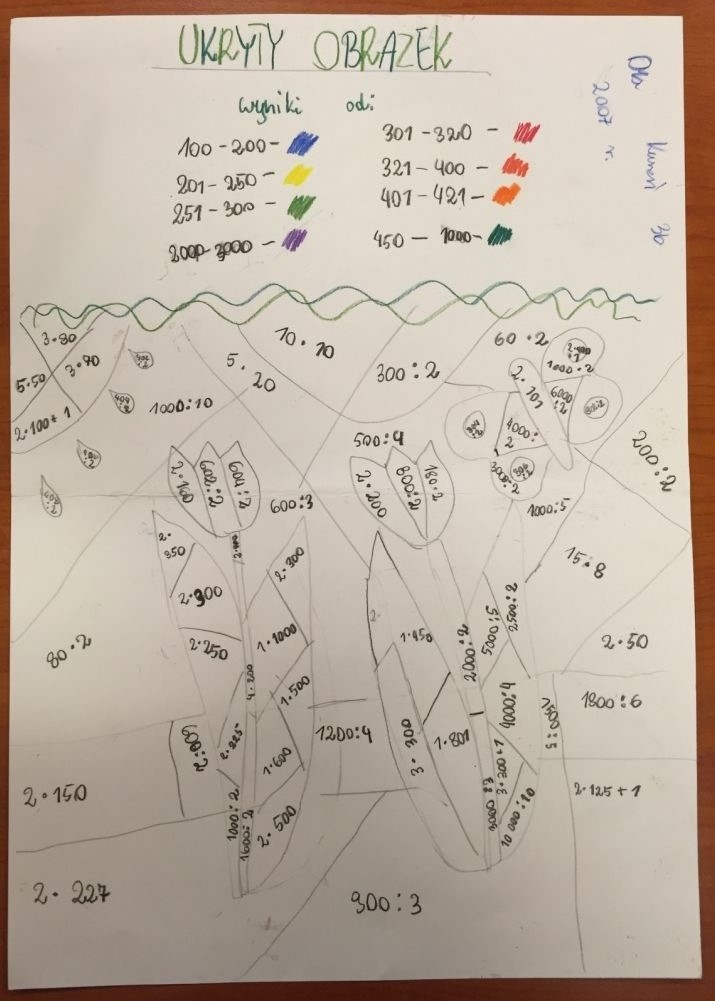 UKRYTY OBRAZEK
wyniki od:
100-200-
201-250-
251-300-
2000-3000-
301-320-
321-400-
401-421-
450-1000-
2007 r.
3b
3·80
5·50
3·70
2·100+1
1000:10
5·20
10·10
300:2
60·2
2·101
1000:2
6000:2
4000:2
3000:2
200:2
500:4
600:3
1000:5
2·100
602:2
604:2
2·200
800:2
180:2
15·8
2·50
80·2
2·350
2·300
2·300
2·250
1·1000
4·200
1·500
2·225
1·600
600:2
1000:2
1600:2
2·500
1200:4
1·450
3·300
1·801
2000:2
5000:5
2500:2
4000:4
3·200+1
10000:10
1500:5
1800:6
2·125+1
2·150
2·227
900:3